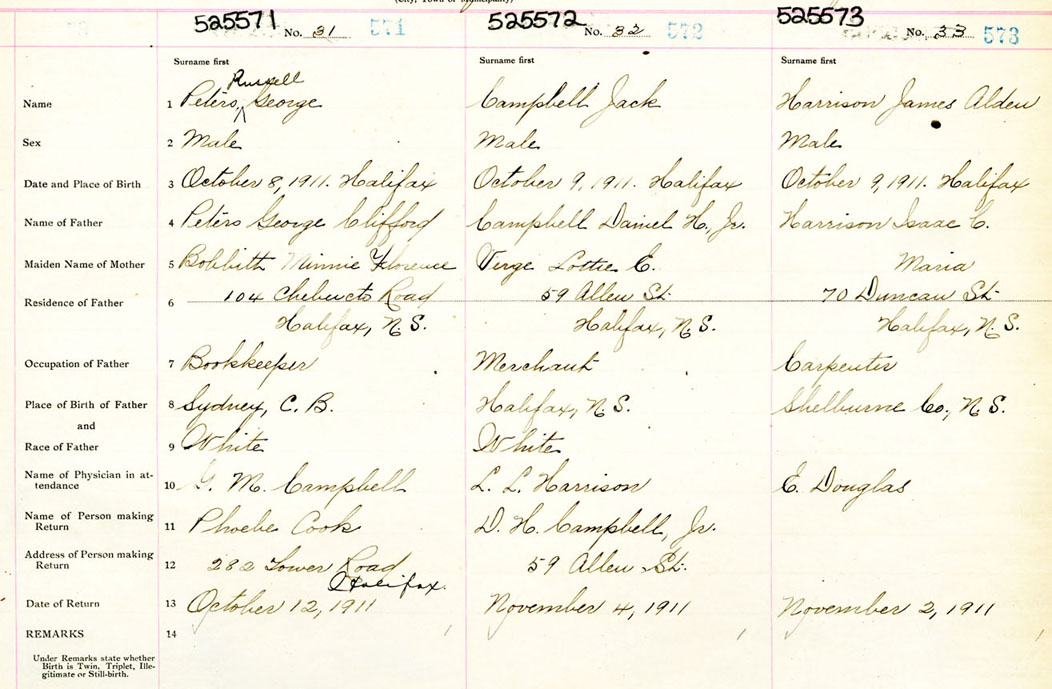 (City, Town or Municipality)
525571 525572 525573
No. 31 571 No. 32 572 No. 33 573
Surname first Surname first Surname first
Russell
Name 1 Peters, George Campbell Jack Harrison James Alden
Sex 2 Male Male Male
Date and Place of Birth 3 October 8, 1911. Halifax October 9, 1911. Halifax October 9, 1911. Halifax
Name of Father 4 Peters George Clifford Campbell Daniel H., Jr. Harrison Isaac C.
Maiden Name of Mother 5 Bobbitth Minnie Florence Verge Lottie E. Maria
Residence of Father 6 104 Chebucto Road 59 Allen St. 70 Duncan St.
Halifax, N. S. Halifax, N. S. Halifax, N. S.
Occupation of Father 7 Bookkeeper Merchant Carpenter
Place of Birth of Father 8 Sydney, C. B. Halifax, N. S. Shelburne Co., N. S.
and
Race of Father 9 White White
Name of Physician in at-
tendance 10 G. M. Campbell L. L. Harrison E. Douglas
Name of Person making
Return 11 Phoebe Cook D. H. Campbell, Jr.
Address of Person making
Return 12 282 Tower Road 59 Allen St.
Halifax.
Date of Return 13 October 12, 1911 November 4, 1911 November 2, 1911
REMARKS 14
Under Remarks state whether
Birth is Twin, Triplet, Ille-
gitimate or Still-birth.